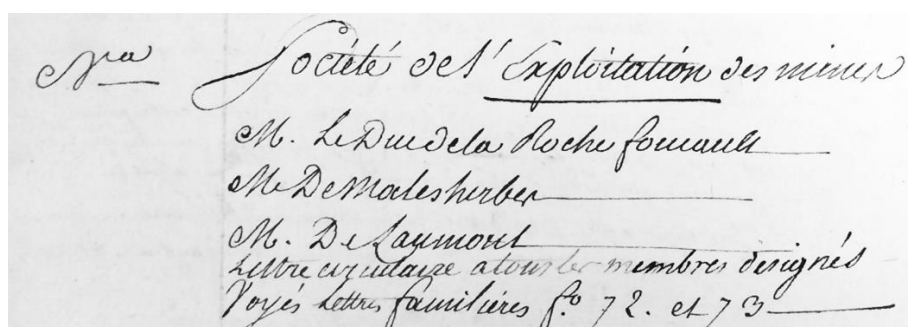 Nra Société de l'Exploitation des mines
M. Le Duc de la Roche foucault
M. De Malesherbes
M. De Laumont
Lettre circulaire a tous les membres designés
Voyés Lettres familières fo. 72. et 73